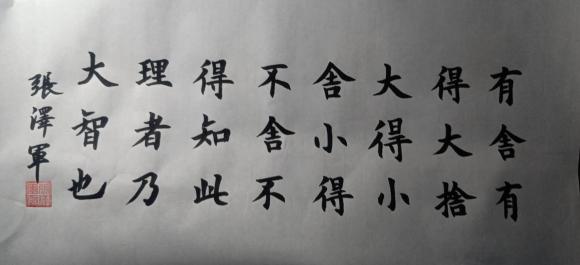 有舍有
得大捨
大得小
舍小得
不舍不
得知此
理者乃
大智也
張澤軍